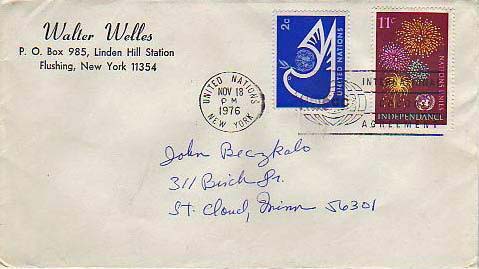 Walter Welles
P. O. Box 985, Linden Hill Station
Flushing, New York 11354
2c
UNITED NATIONS
11c
NATIONS UNIES
INDEPENDANCE
UNITED NATIONS
NOV 18
PM
1976
NEW YORK
AGREEMENT
John
311 Birch Dr.
St. Cloud, Minn 56301